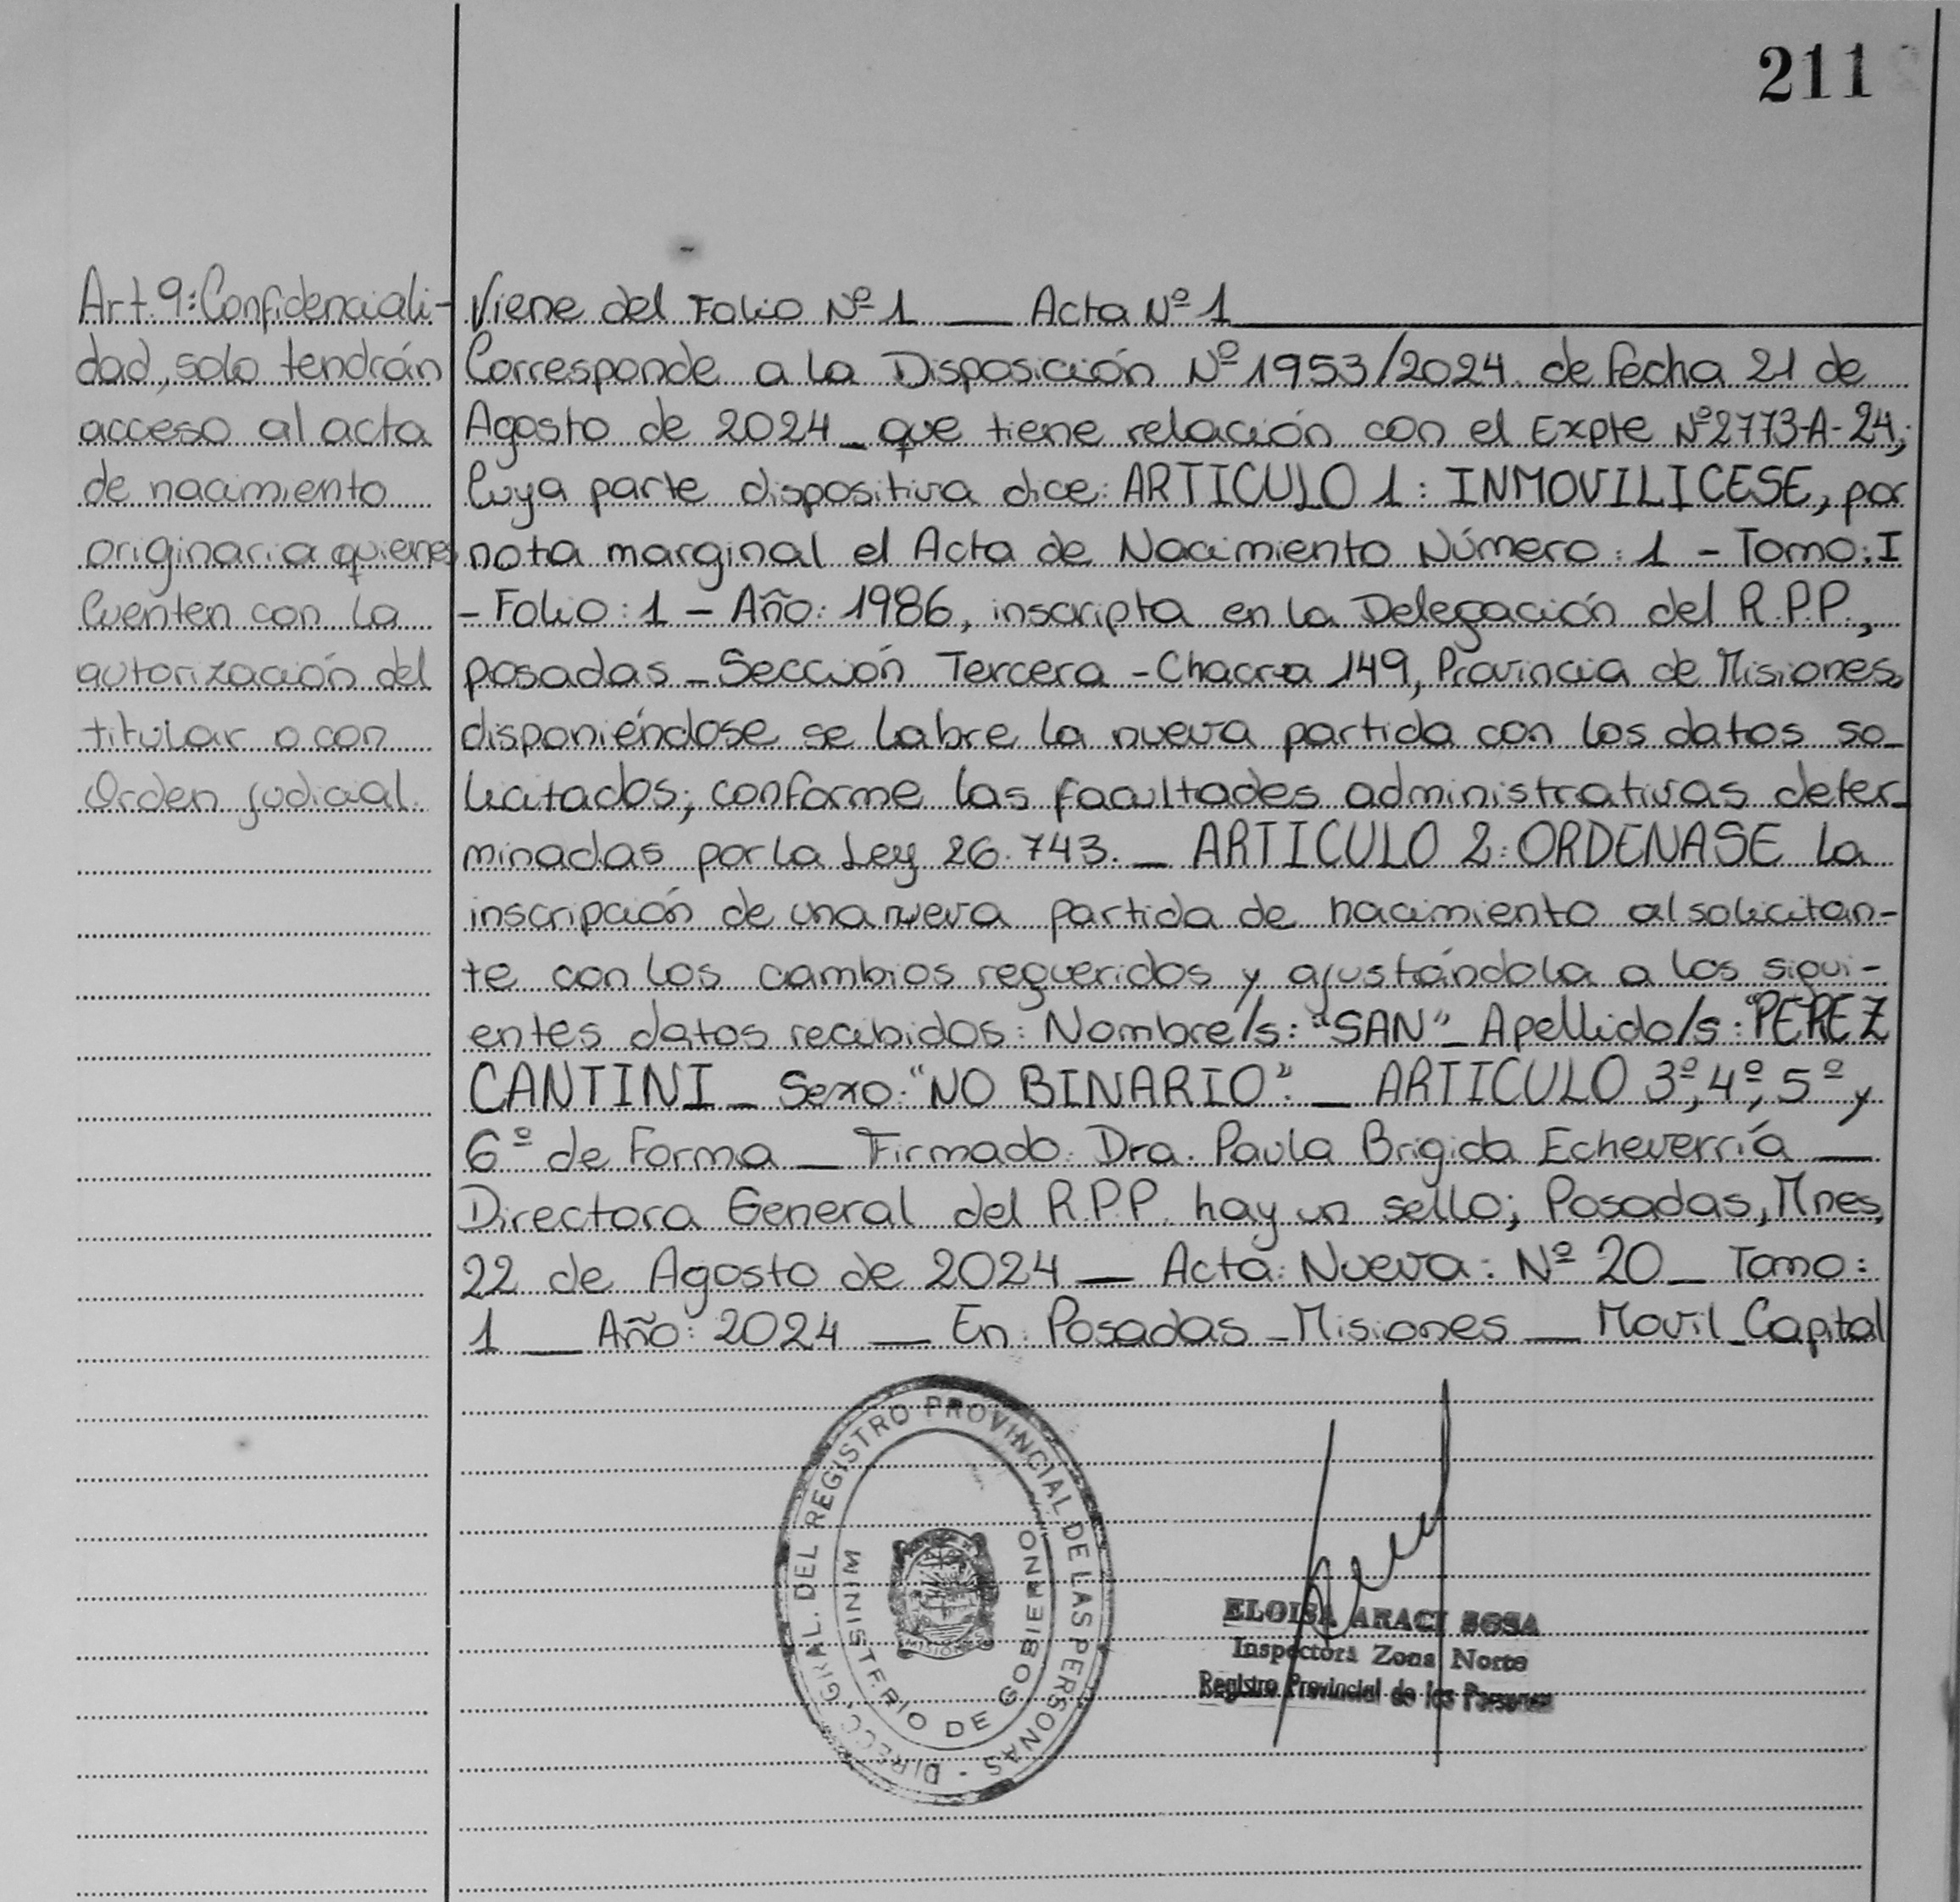 211
Art. 9: Confidenciali-
dad, solo tendrán
acceso al acta
de nacimiento
originaria quienes
Cuenten con la
autorización del
titular o con
Orden judicial.
Viene del Folio Nº 1 __ Acta Nº 1
Corresponde a la Disposición Nº 1953/2024. de fecha 21 de
Agosto de 2024 _ que tiene relación con el Expte Nº 2773-A-24,
Cuya parte dispositiva dice: ARTICULO 1: INMOVILICESE, por
nota marginal el Acta de Nacimiento Número: 1 - Tomo: I
- Folio: 1 - Año: 1986, inscripta en la Delegación del R.P.P.,
posadas - Sección Tercera - Chacra 149, Provincia de Misiones,
disponiéndose se labre la nueva partida con los datos so-
licitados; conforme las facultades administrativas deter-
minadas por la Ley 26.743. _ ARTICULO 2: ORDENASE la
inscripción de una nueva partida de nacimiento al solicitan-
te con los cambios requeridos y ajustándola a los sigui-
entes datos recibidos: Nombre/s: "SAN" _ Apellido/s: "PEREZ
CANTINI _ Sexo: "NO BINARIO". _ ARTICULO 3º, 4º, 5º y
6º de Forma _ Firmado: Dra. Paula Brigida Echeverría __
Directora General del R.P.P. hay un sello; Posadas, Mnes,
22 de Agosto de 2024 __ Acta: Nueva: Nº 20 _ Tomo:
1 __ Año: 2024 __ En: Posadas - Misiones __ Movil Capital
DIRECC. GRAL. DEL REGISTRO PROVINCIAL DE LAS PERSONAS -
MINISTERIO DE GOBIERNO
MISIONES
ELOISA ARACI SOSA
Inspectora Zona Norte
Registro Provincial de las Personas